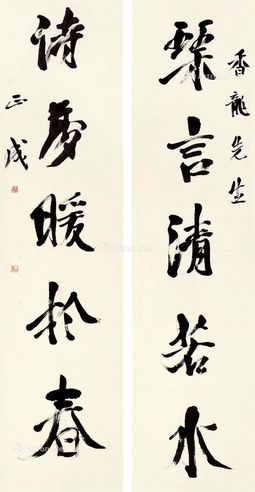 香龍先生
琴言清若水
詩夢暖於春
正成